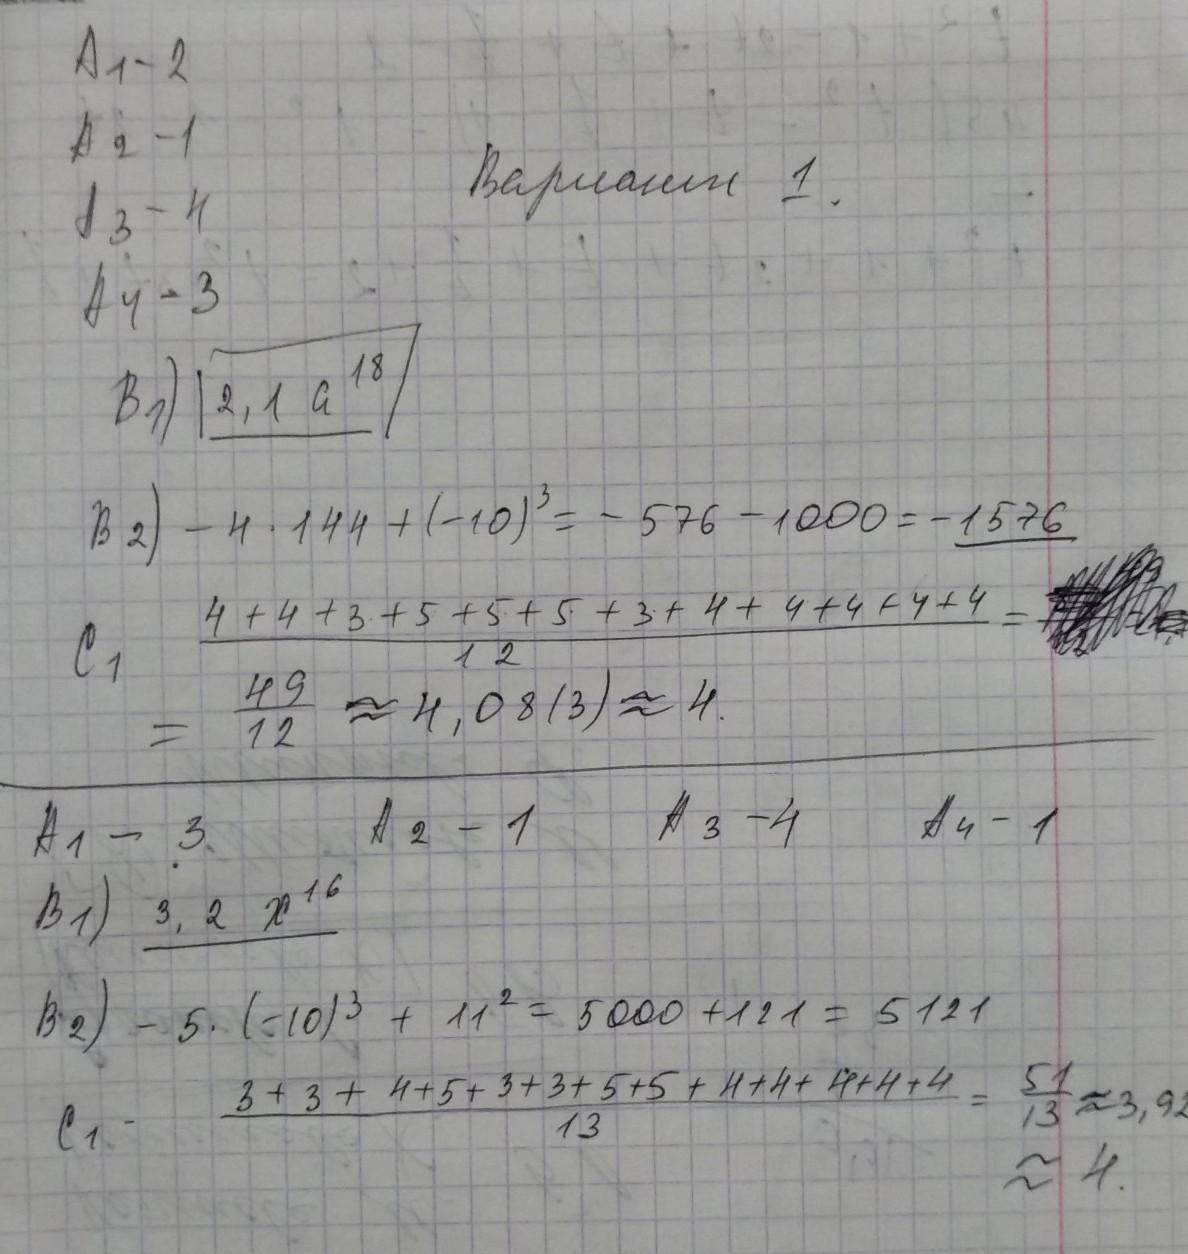 A1 - 2
A2 - 1
Вариант 1.
A3 - 4
A4 - 3
B1) 2,1 a^18
B2) - 4 · 144 + (-10)^3 = - 576 - 1000 = - 1576
C1 (4 + 4 + 3 + 5 + 5 + 5 + 3 + 4 + 4 + 4 + 4 + 4) / 12 =
= 49/12 ≈ 4,08(3) ≈ 4.
A1 - 3 A2 - 1 A3 - 4 A4 - 1
B1) 3,2 x^16
B2) - 5 · (-10)^3 + 11^2 = 5000 + 121 = 5121
C1 - (3 + 3 + 4 + 5 + 3 + 3 + 5 + 5 + 4 + 4 + 4 + 4 + 4) / 13 = 51/13 ≈ 3,92
≈ 4.